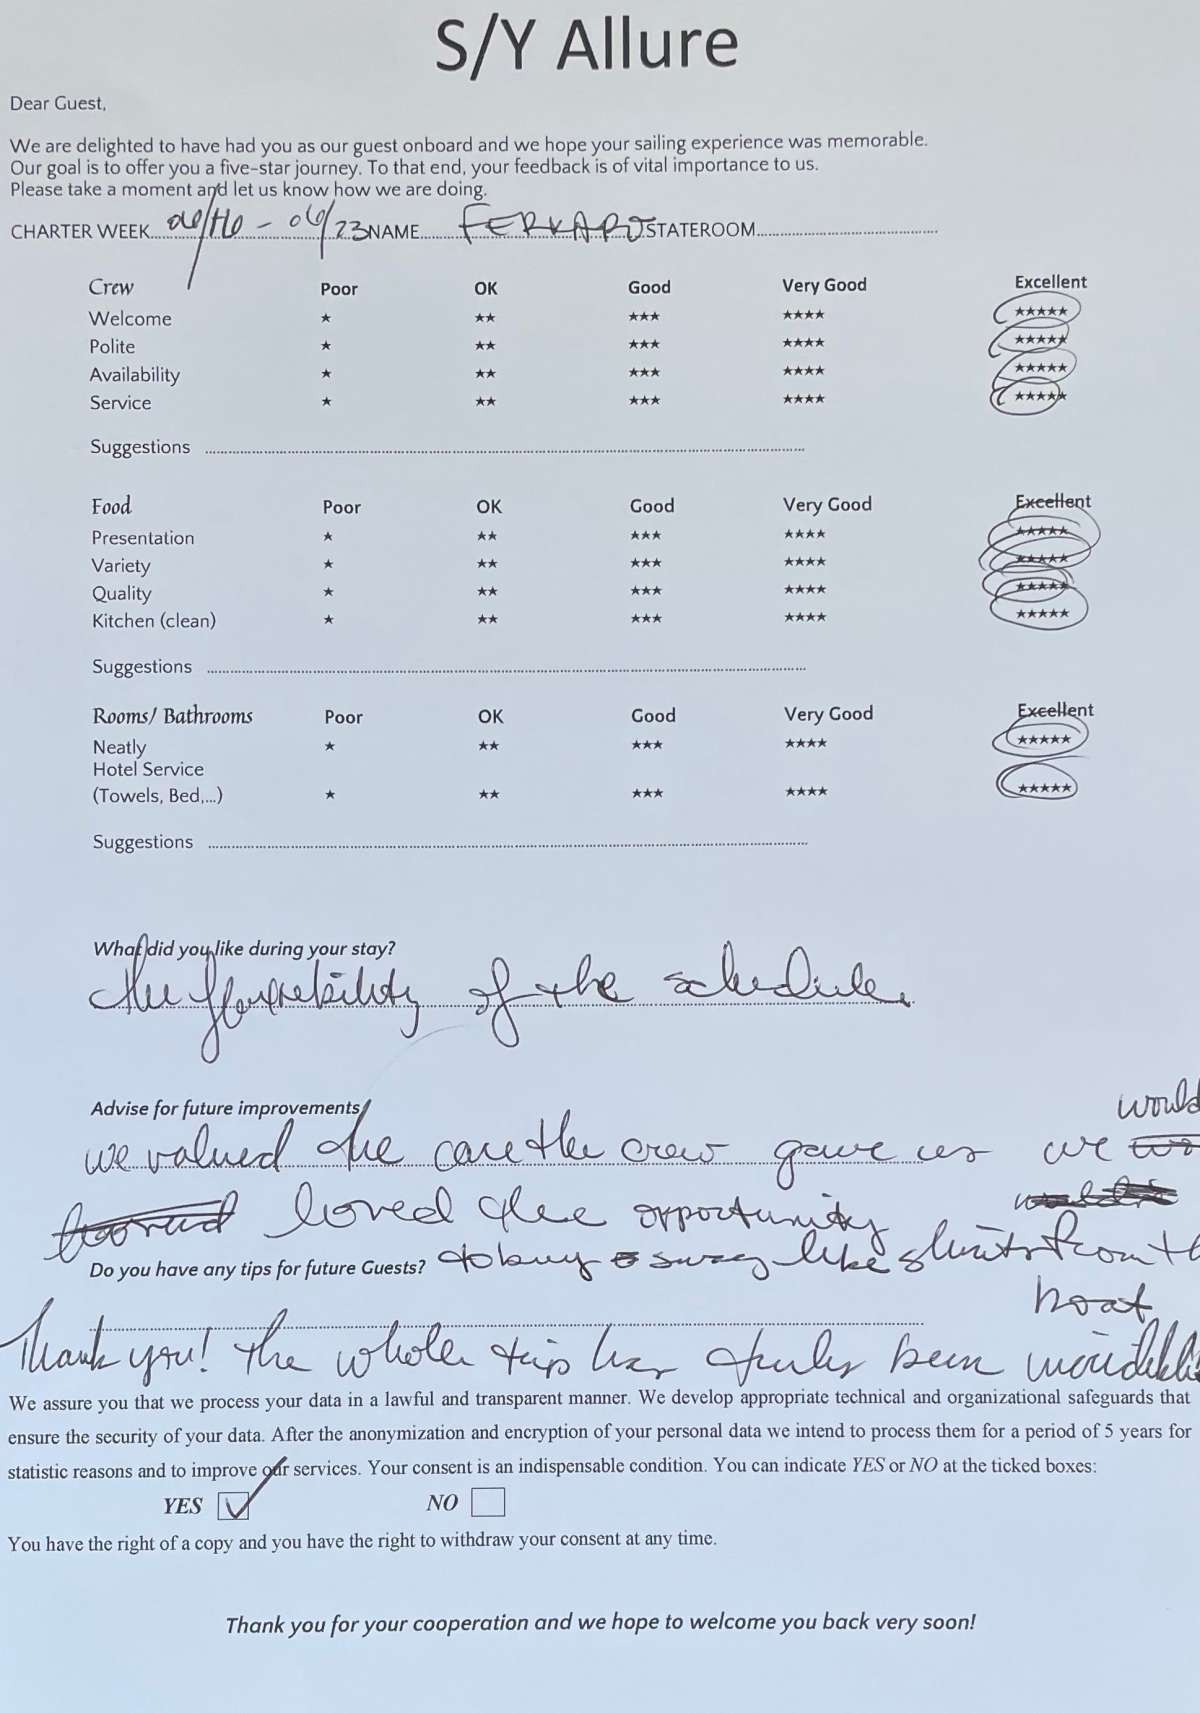 S/Y Allure
Dear Guest,
We are delighted to have had you as our guest onboard and we hope your sailing experience was memorable.
Our goal is to offer you a five-star journey. To that end, your feedback is of vital importance to us.
Please take a moment and let us know how we are doing.
CHARTER WEEK 06/16 - 06/23 NAME STATEROOM
Crew Poor OK Good Very Good Excellent
Welcome ★ ★★ ★★★ ★★★★ ★★★★★
Polite ★ ★★ ★★★ ★★★★ ★★★★★
Availability ★ ★★ ★★★ ★★★★ ★★★★★
Service ★ ★★ ★★★ ★★★★ ★★★★★
Suggestions
Food Poor OK Good Very Good Excellent
Presentation ★ ★★ ★★★ ★★★★ ★★★★★
Variety ★ ★★ ★★★ ★★★★ ★★★★★
Quality ★ ★★ ★★★ ★★★★ ★★★★★
Kitchen (clean) ★ ★★ ★★★ ★★★★ ★★★★★
Suggestions
Rooms/ Bathrooms Poor OK Good Very Good Excellent
Neatly ★ ★★ ★★★ ★★★★ ★★★★★
Hotel Service
(Towels, Bed,...) ★ ★★ ★★★ ★★★★ ★★★★★
Suggestions
What did you like during your stay?
the flexibility of the schedule
Advise for future improvements
would
we valued the care the crew gave us we
loved the opportunity
Do you have any tips for future Guests? to buy swag like shirts from th
boat
Thank you! The whole trip has truly been incredible
We assure you that we process your data in a lawful and transparent manner. We develop appropriate technical and organizational safeguards that
ensure the security of your data. After the anonymization and encryption of your personal data we intend to process them for a period of 5 years for
statistic reasons and to improve our services. Your consent is an indispensable condition. You can indicate YES or NO at the ticked boxes:
YES NO
You have the right of a copy and you have the right to withdraw your consent at any time.
Thank you for your cooperation and we hope to welcome you back very soon!